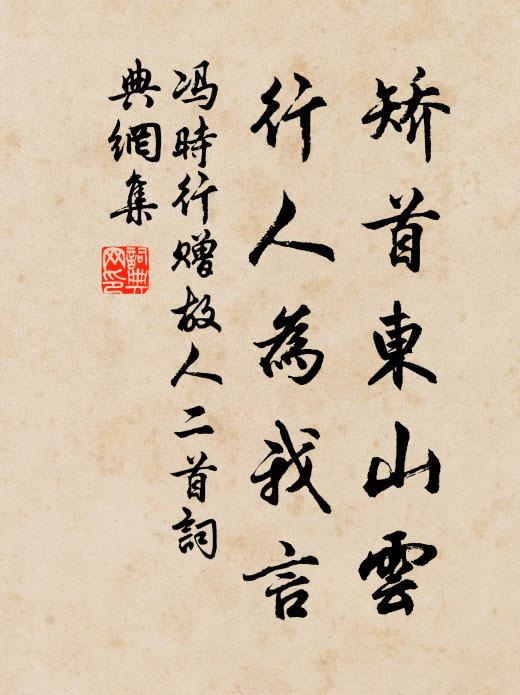 矯首東山雲
行人為我言
冯時行赠故人二首詞
典網集
詞典
网印